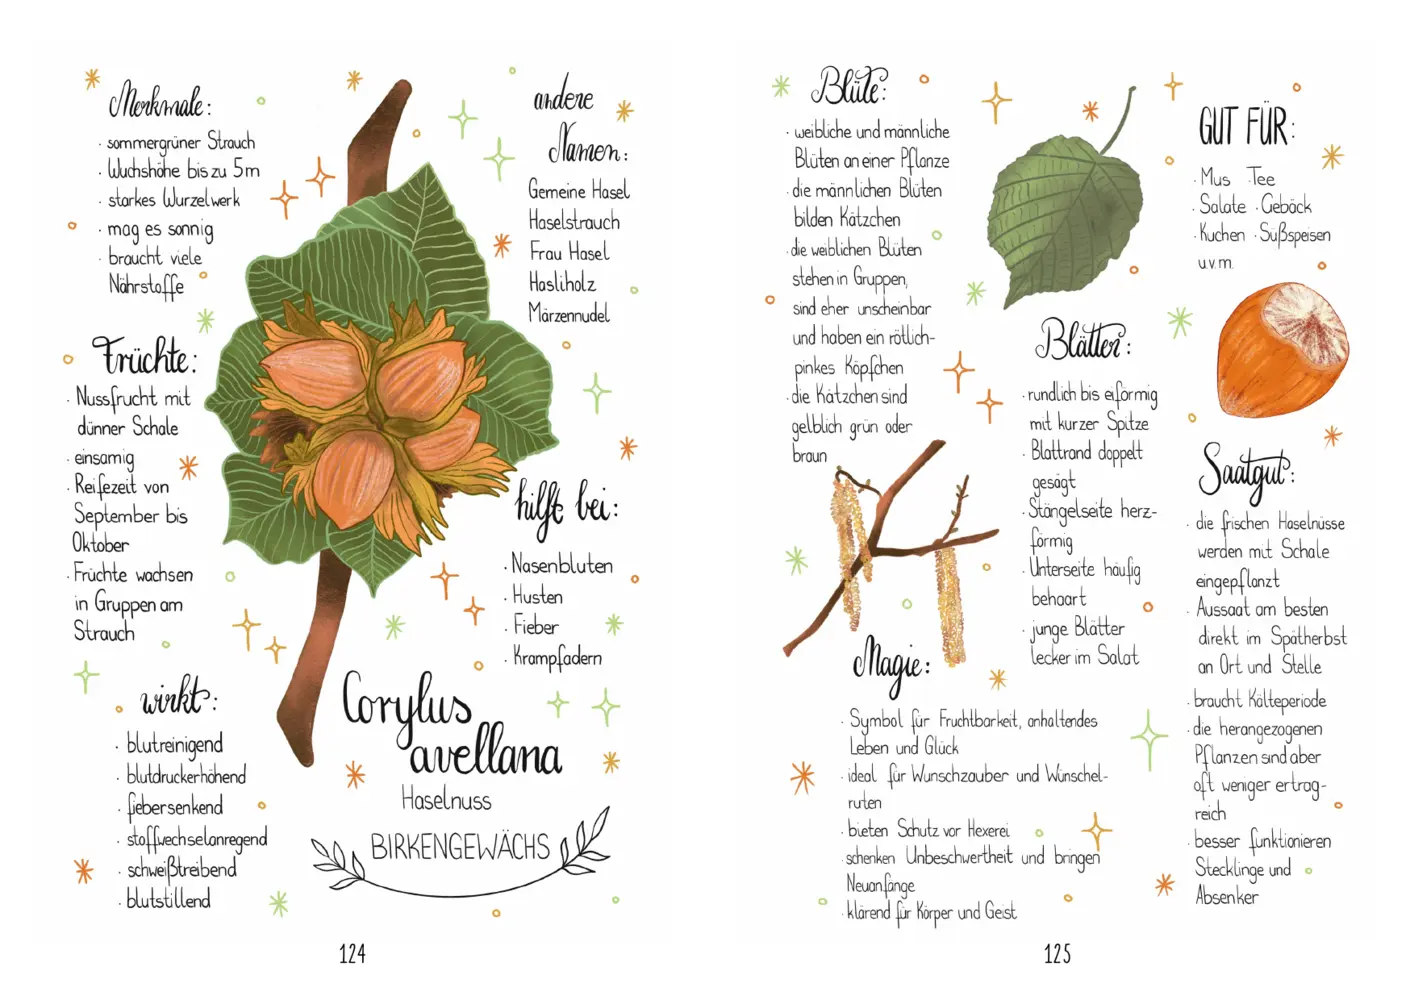 Merkmale:
· sommergrüner Strauch
· Wuchshöhe bis zu 5m
· starkes Wurzelwerk
· mag es sonnig
· braucht viele
Nährstoffe
Früchte:
· Nussfrucht mit
dünner Schale
· einsamig
· Reifezeit von
September bis
Oktober
· Früchte wachsen
in Gruppen am
Strauch
wirkt:
· blutreinigend
· blutdruckerhöhend
· fiebersenkend
· stoffwechselanregend
· schweißtreibend
· blutstillend
andere
Namen:
Gemeine Hasel
Haselstrauch
Frau Hasel
Hasliholz
Märzennudel
hilft bei:
· Nasenbluten
· Husten
· Fieber
· Krampfadern
Corylus
avellana
Haselnuss
BIRKENGEWÄCHS
124
Blüte:
· weibliche und männliche
Blüten an einer Pflanze
· die männlichen Blüten
bilden Kätzchen
· die weiblichen Blüten
stehen in Gruppen,
sind eher unscheinbar
und haben ein rötlich-
pinkes Köpfchen
· die Kätzchen sind
gelblich grün oder
braun
Blätter:
· rundlich bis eiförmig
mit kurzer Spitze
· Blattrand doppelt
gesägt
· Stängelseite herz-
förmig
· Unterseite häufig
behaart
· junge Blätter
lecker im Salat
GUT FÜR:
· Mus · Tee
· Salate · Gebäck
· Kuchen · Süßspeisen
u.v.m.
Saatgut:
· die frischen Haselnüsse
werden mit Schale
eingepflanzt
· Aussaat am besten
direkt im Spätherbst
an Ort und Stelle
· braucht Kälteperiode
· die herangezogenen
Pflanzen sind aber
oft weniger ertrag-
reich
· besser funktionieren
Stecklinge und
Absenker
Magie:
· Symbol für Fruchtbarkeit, anhaltendes
Leben und Glück
· ideal für Wunschzauber und Wünschel-
ruten
· bieten Schutz vor Hexerei
· schenken Unbeschwertheit und bringen
Neuanfänge
· klärend für Körper und Geist
125